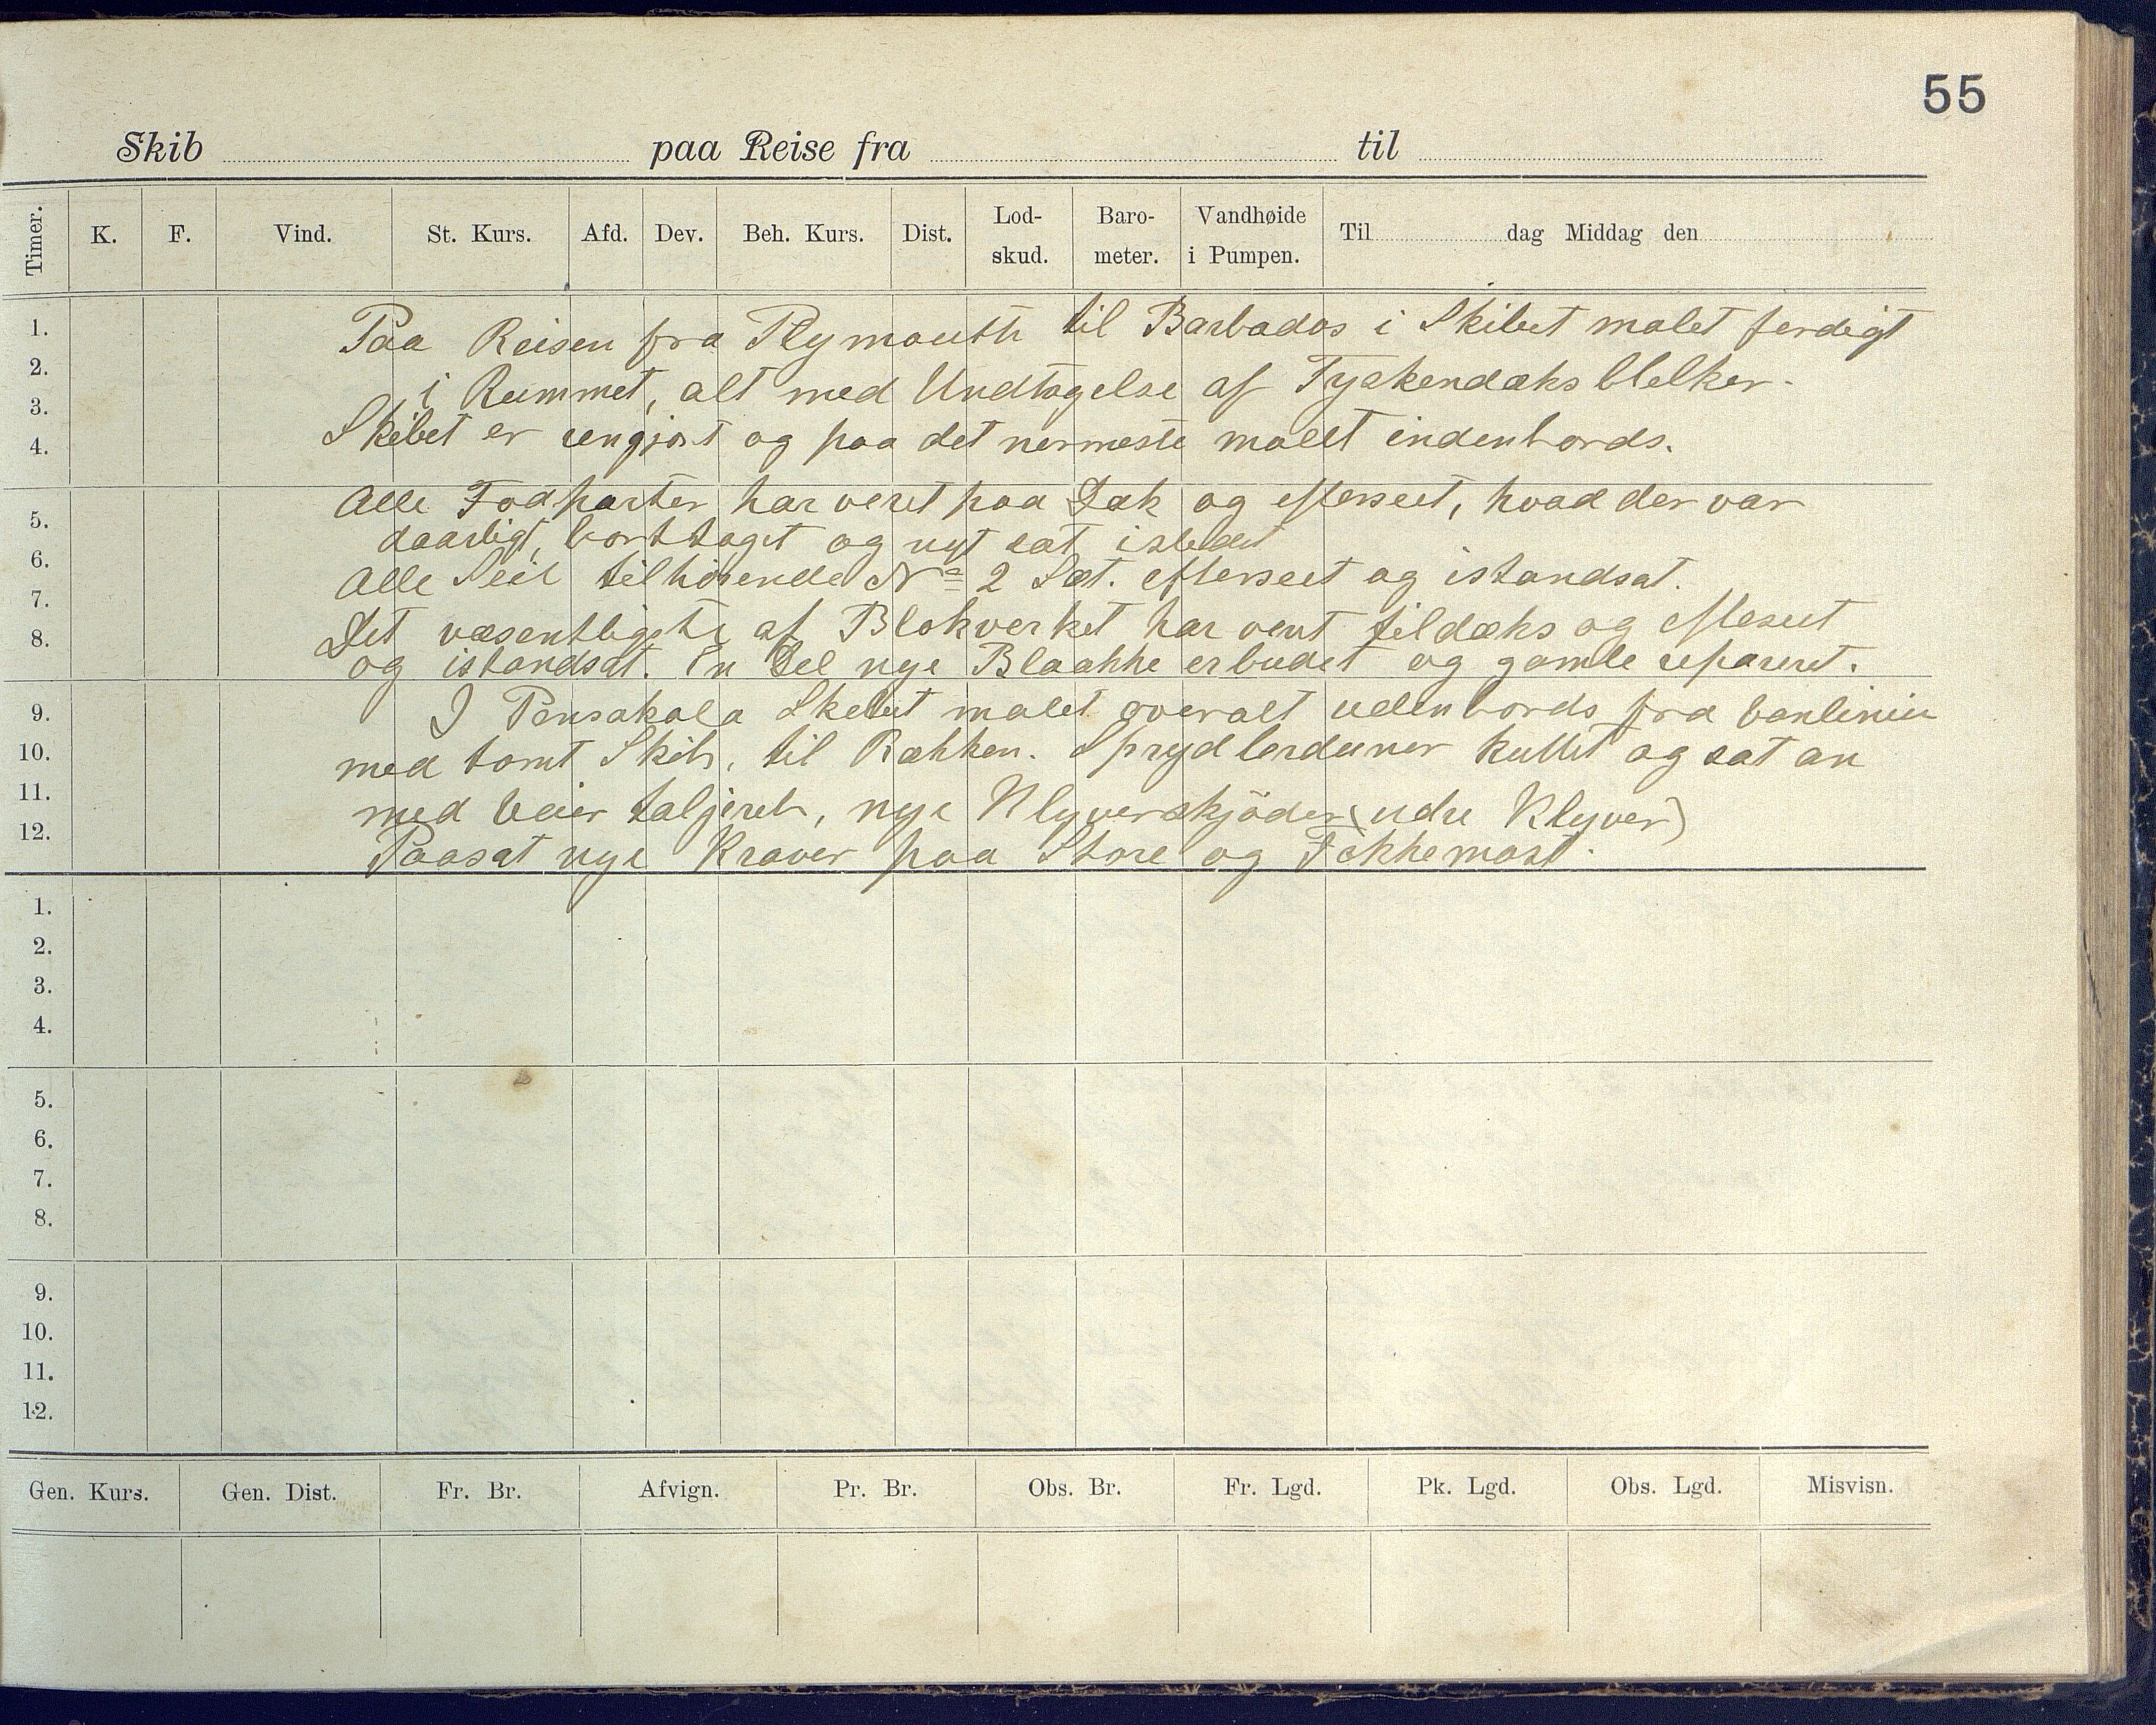 55
Skib paa Reise fra til
Timer. K. F. Vind. St. Kurs. Afd. Dev. Beh. Kurs. Dist. Lod-skud. Baro-meter. Vandhøide i Pumpen. Til dag Middag den
1.
2.
3.
4.
5.
6.
7.
8.
9.
10.
11.
12.
Paa Reisen fra Plymouth til Barbados i Skibet malet ferdigt
i Rummet, alt med Undtagelse af
Skibet er rengjort og paa det nermeste malet indenbords.
Alle Fodparter har veret paa Dæk og efterseet, hvad der var
daarligt, borttaget og nyt sat istedet
Alle Seil tilhörende No 2 Sæt. efterseet og istandsat.
Det væsentligste af Blokverket har veret tildæks og efterseet
og istandsat. En Del nye Blaakke er budet og gamle repareret.
I Pensakola Skebet malet overalt udenbords fra
med tomt Skib, til Rækken. Spryd barduner kuttet og sat an
med taljereb, nye Klyverskjöder (udre Klyver)
Paasat nye Kraver paa Store og Fokkemast.
1.
2.
3.
4.
5.
6.
7.
8.
9.
10.
11.
12.
Gen. Kurs. Gen. Dist. Fr. Br. Afvign. Pr. Br. Obs. Br. Fr. Lgd. Pk. Lgd. Obs. Lgd. Misvisn.